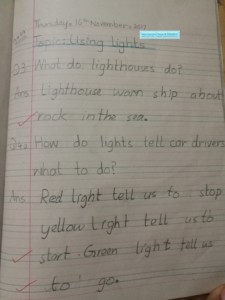 Thursday, 16th November, 2017
Topic: Using lights
Q.3 What do lighthouses do?
Ans Lighthouse warn ship about
rock in the sea.
Q.4 How do lights tell car drivers
what to do?
Ans Red light tell us to stop
yellow light tell us to
start. Green light tell us
to go.